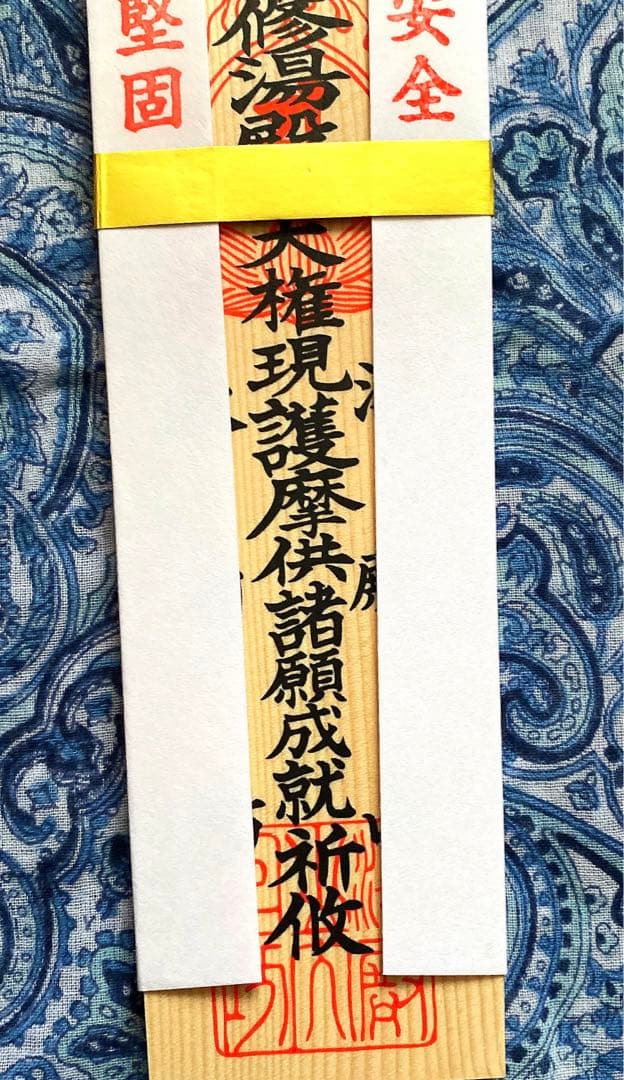 安全
修湯殿大権現護摩供諸願成就祈攸
堅固